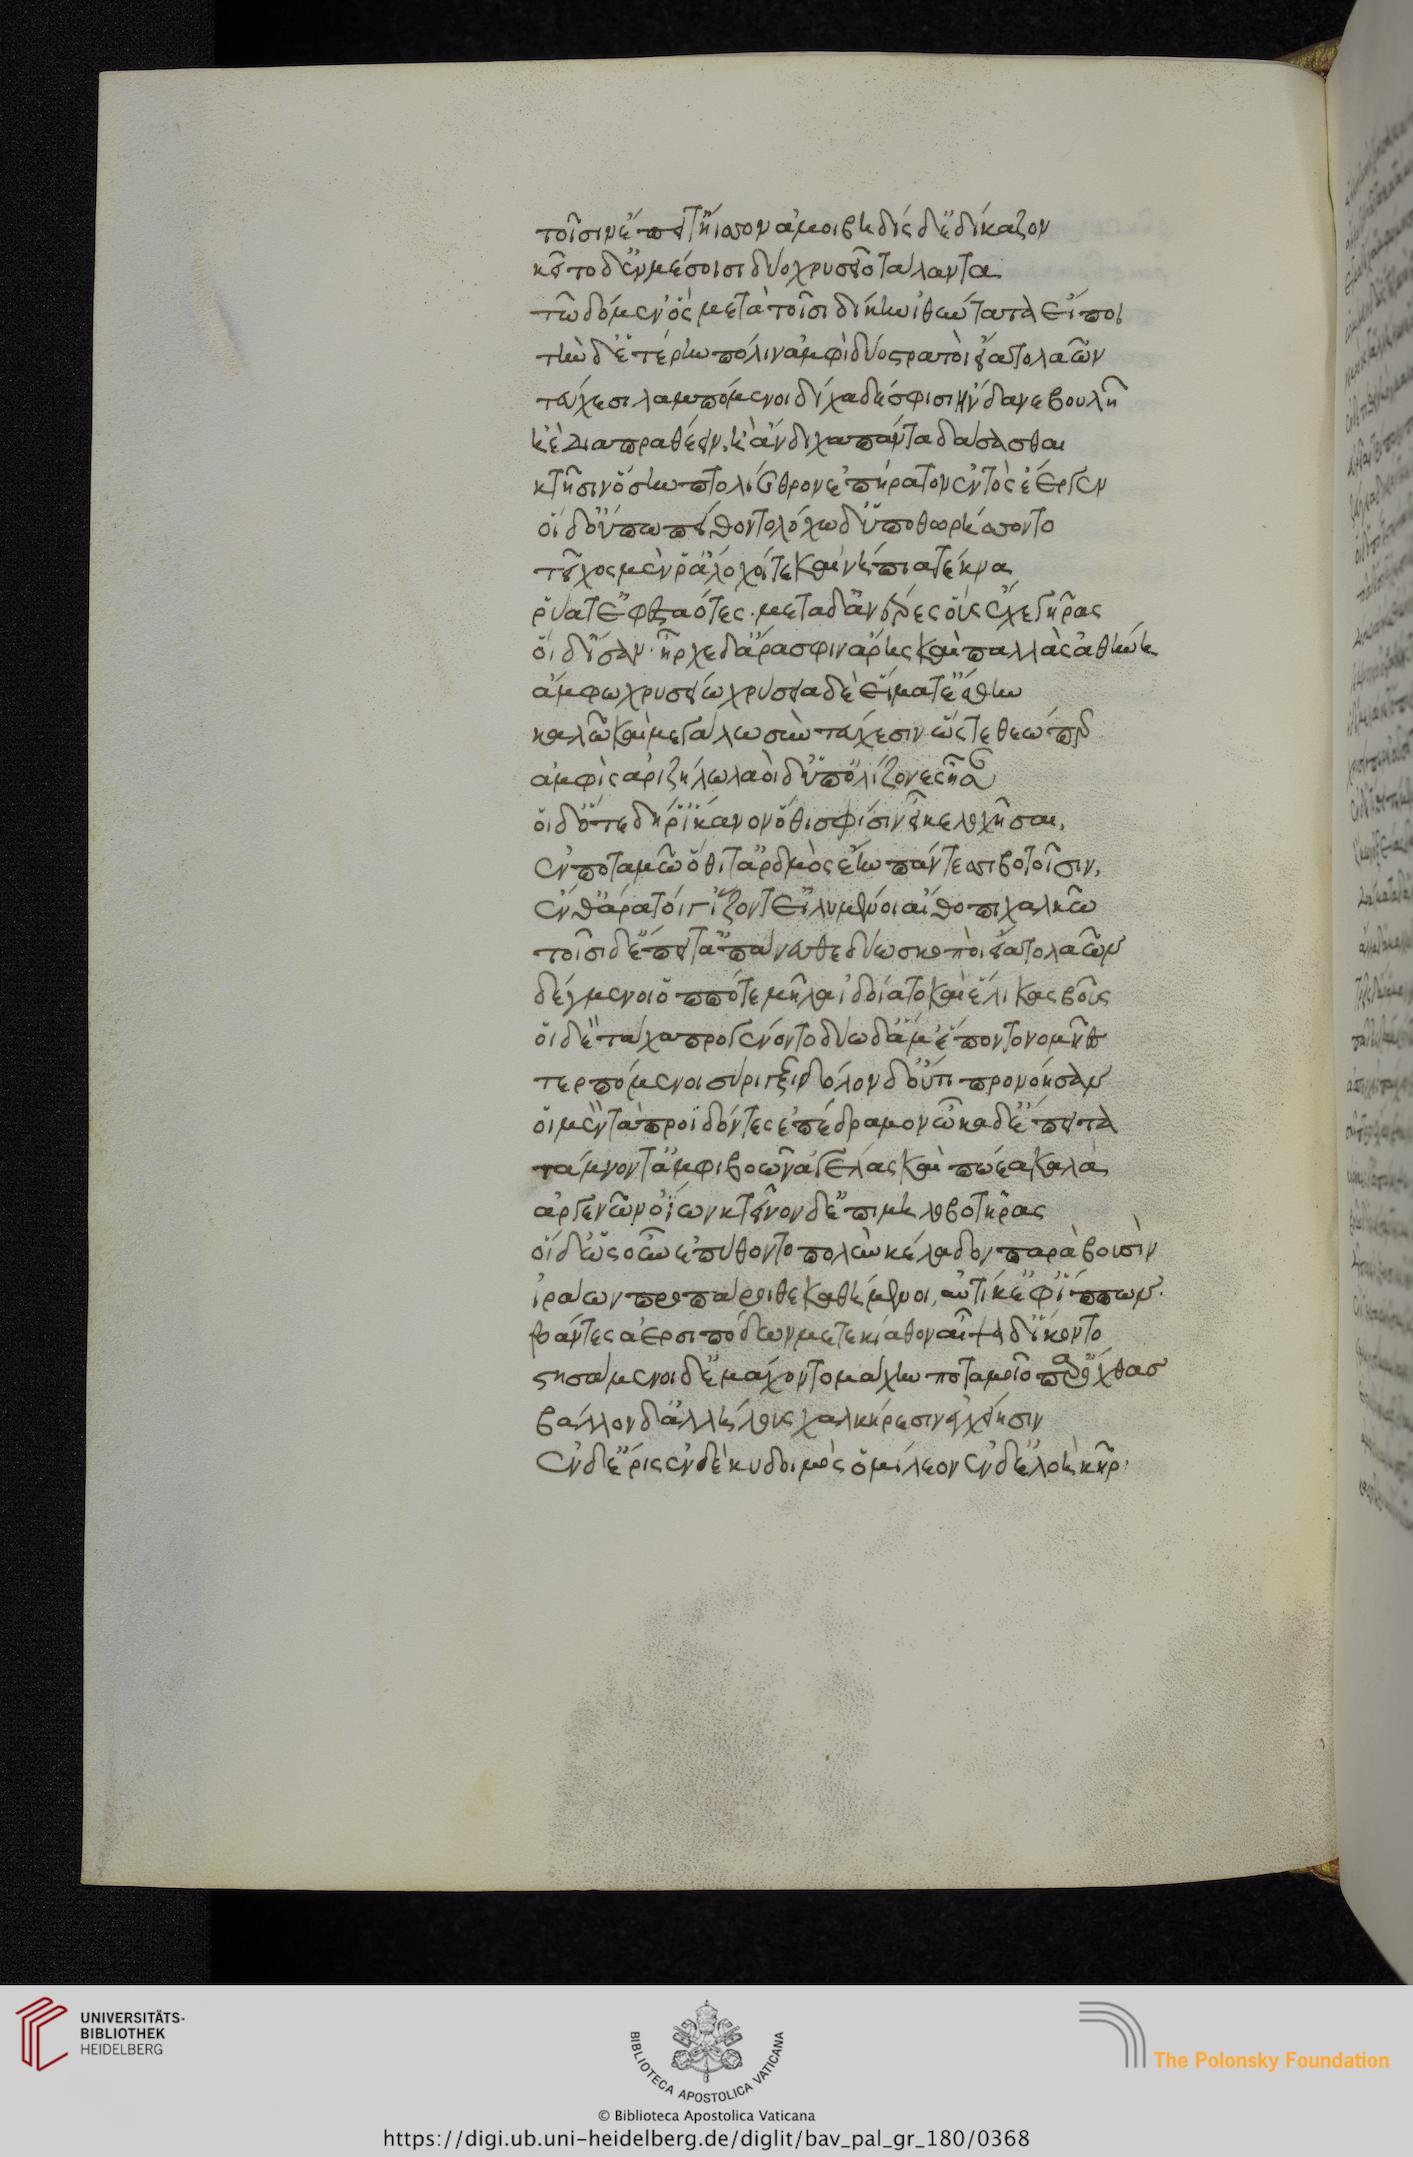 τοῖσιν ἔπειτ' ἤισσον ἀμοιβηδίς δὲ δίκαζον
κεῖτο δ' ἐν μέσοισι δύο χρυσεῖο τάλαντα
τῶ δόμεν ὃς μετὰ τοῖσι δίκην ἰθύντατα εἴποι
τὴν δ' ἑτέρην πόλιν ἀμφὶ δύο στρατοὶ εἵατο λαῶν
τεύχεσι λαμπόμενοι δίχα δέ σφισιν ἥνδανε βουλῆ
ἠὲ διαπραθέειν, ἢ ἄνδιχα πάντα δάσασθαι
κτῆσιν ὅσην πτολίεθρον ἐπήρατον ἐντὸς ἐέργεν
οἵ δ' οὔπω πείθοντο λόχω δ' ὑποθωρήσσοντο
τεῖχος μὲν ῥ' ἄλοχοί τε καὶ νήπια τέκνα
ῥύατ' ἐφεσταότες. μετα δ' ἄνδρες οὓς ἔχε γῆρας
οἵ δ' ἴσαν· ἦρχε δ' ἄρα σφιν ἄρης καὶ παλλὰς ἀθήνη
ἄμφω χρυσείω χρύσεια δὲ εἵματ' ἕσθην
καλῶ καὶ μεγάλω σὺν τεύχεσιν ὥς τε θεώ περ
ἀμφὶς ἀριζήλω λαοὶ δ' ὑπολίζονες ἦσαν
οἵ δ' ὅτε δή ῥ' ἵκανον ὅθι σφίσιν εἶκε λοχῆσαι,
ἐν ποταμῶ ὅθι τ' ἀρδμὸς ἔην πάντεσσι βοτοῖσιν,
ἔνθ' ἄρα τοί γ' ἵζοντ' εἰλυμένοι αἴθοπι χαλκῶ
τοῖσι δ' ἔπειτ' ἀπάνευθε δύω σκοποὶ εἵατο λαῶν
δέγμενοι ὁππότε μῆλα ἰδοίατο καὶ ἕλικας βοῦς
οἵ δὲ τάχα προγένοντο δύω δ' ἅμ' ἕποντο νομῆες
τερπόμενοι σύριγξιν δόλον δ' οὔτι προνόησαν
οἵ μὲν τὰ προϊδόντες ἐπέδραμον ὦκα δ' ἔπειτα
τάμνοντ' ἀμφι βοῶν ἀγέλας καὶ πώεα καλὰ
ἀργενῶν οἴων κτεῖνον δ' ἐπι μηλοβοτῆρας
οἵ δ' ὡς οὖν ἐπύθοντο πολὺν κέλαδον παρὰ βουσὶν
ἰράων προπάροιθε καθήμενοι, αὐτίκ' ἐφ' ἵππων.
βάντες ἀερσιπόδων μετεκίαθον αἶψα δ' ἵκοντο
στησάμενοι δ' ἐμάχοντο μάχην ποταμοῖο παρ' ὄχθας
βάλλον δ' ἀλλήλους χαλκήρεσιν ἐγχείησιν
ἐν δ' ἔρις ἐν δὲ κυδοιμὸς ὁμίλεον ἐν δ' ὀλοὴ κῆρ·
UNIVERSITÄTS-
BIBLIOTHEK
HEIDELBERG
BIBLIOTECA APOSTOLICA VATICANA
The Polonsky Foundation
© Biblioteca Apostolica Vaticana
https://digi.ub.uni-heidelberg.de/diglit/bav_pal_gr_180/0368